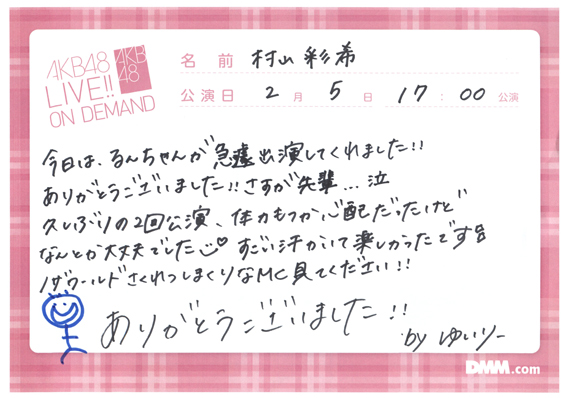 AKB48
LIVE!!
ON DEMAND
AKB
48
名 前 村山 彩希
公演日 2 月 5 日 17 : 00 公演
今日は、るんちゃんが急遽出演してくれました!!
ありがとうございました!!さすが先輩...泣
久しぶりの2回公演、体力もつか心配だったけど
なんとか大丈夫でした♡ すごい汗かいて楽しかったです
ノザワールドさくれつしまくりなMC見てください!!
ありがとうございました!!
by ゆいりー
DMM.com